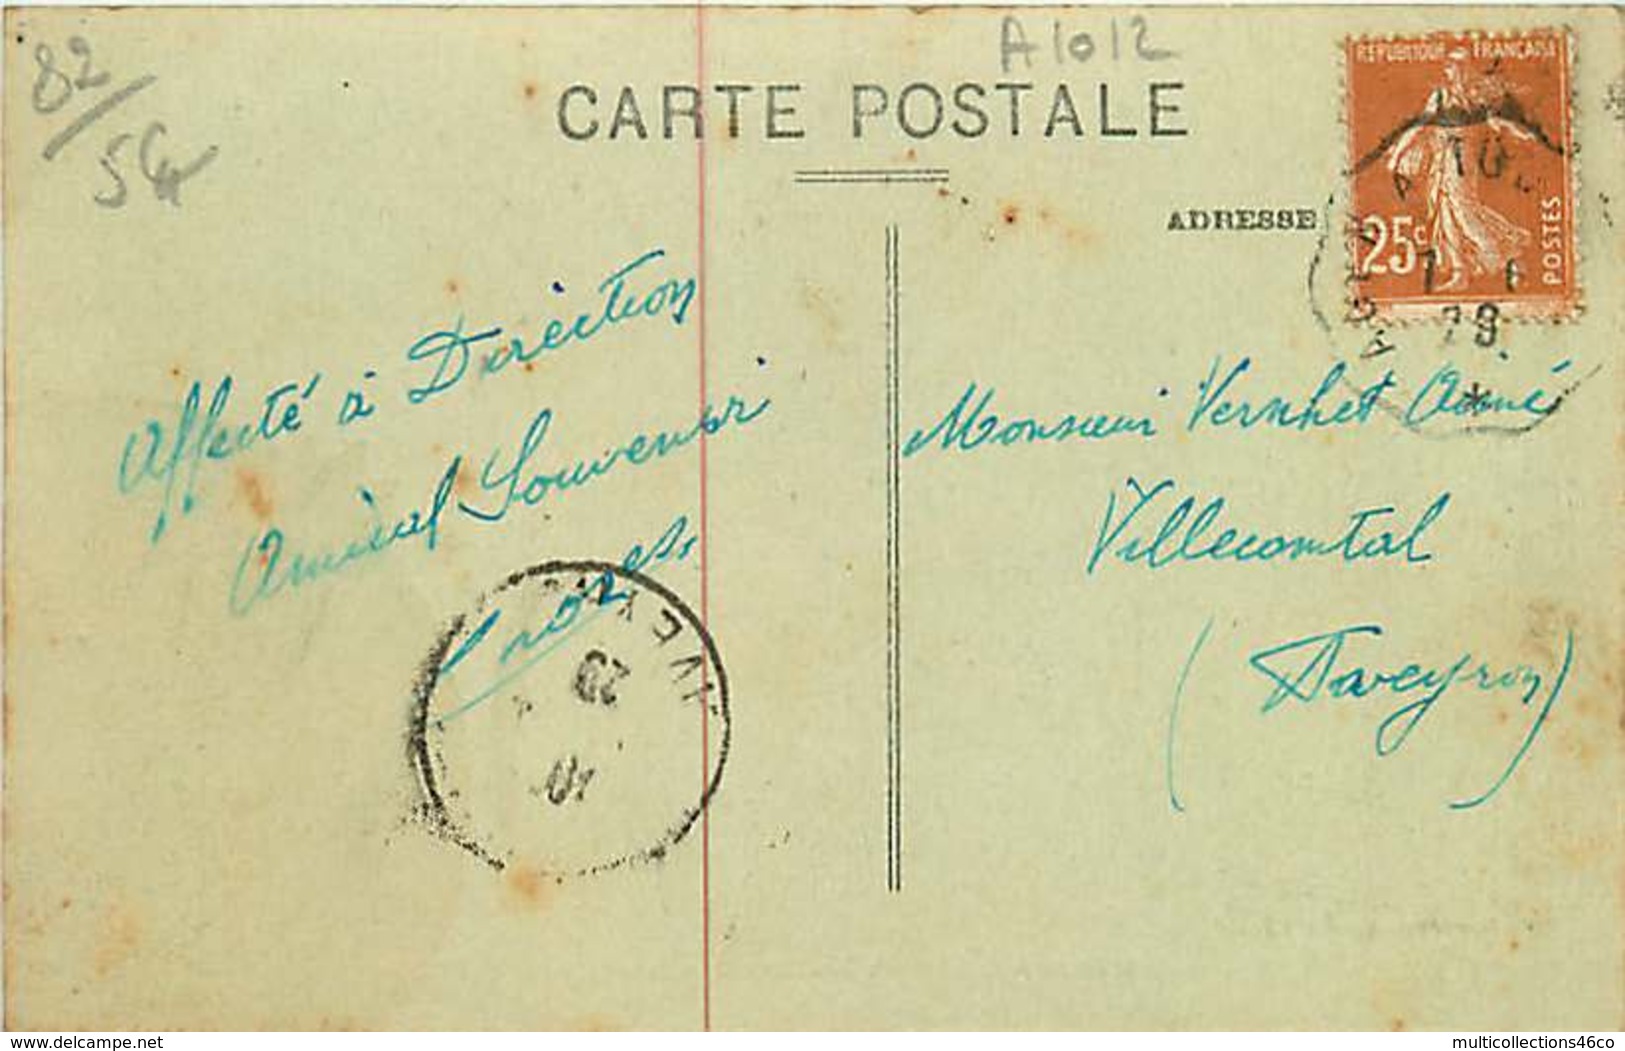 82/54
A1012
CARTE POSTALE
REPUBLIQUE FRANÇAISE
25c
POSTES
ADRESSE
Affecté à Direction
Amical Souvenir
Monsieur Vernhet Aimé
Villecomtal
(Aveyron)
AVEY
29
10
delcampe.net
multicollections46co